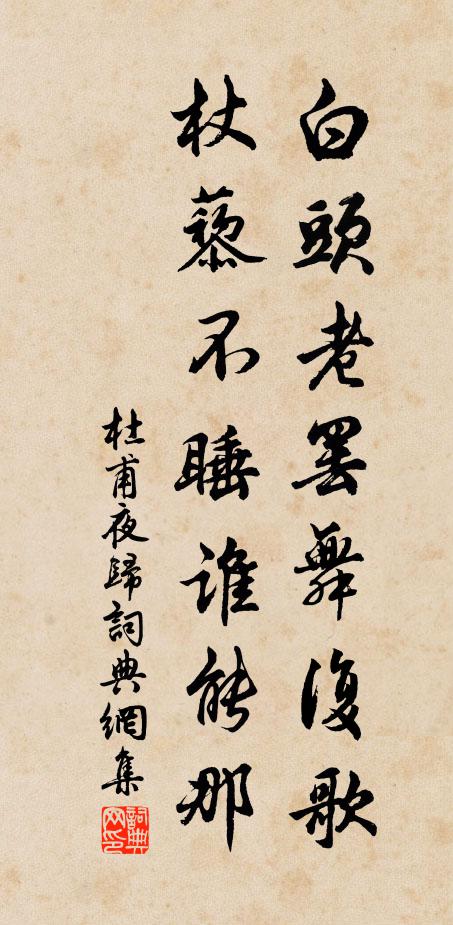 白頭老罷舞復歌
杖藜不睡誰能那
杜甫夜歸詞典網集
詞典網印